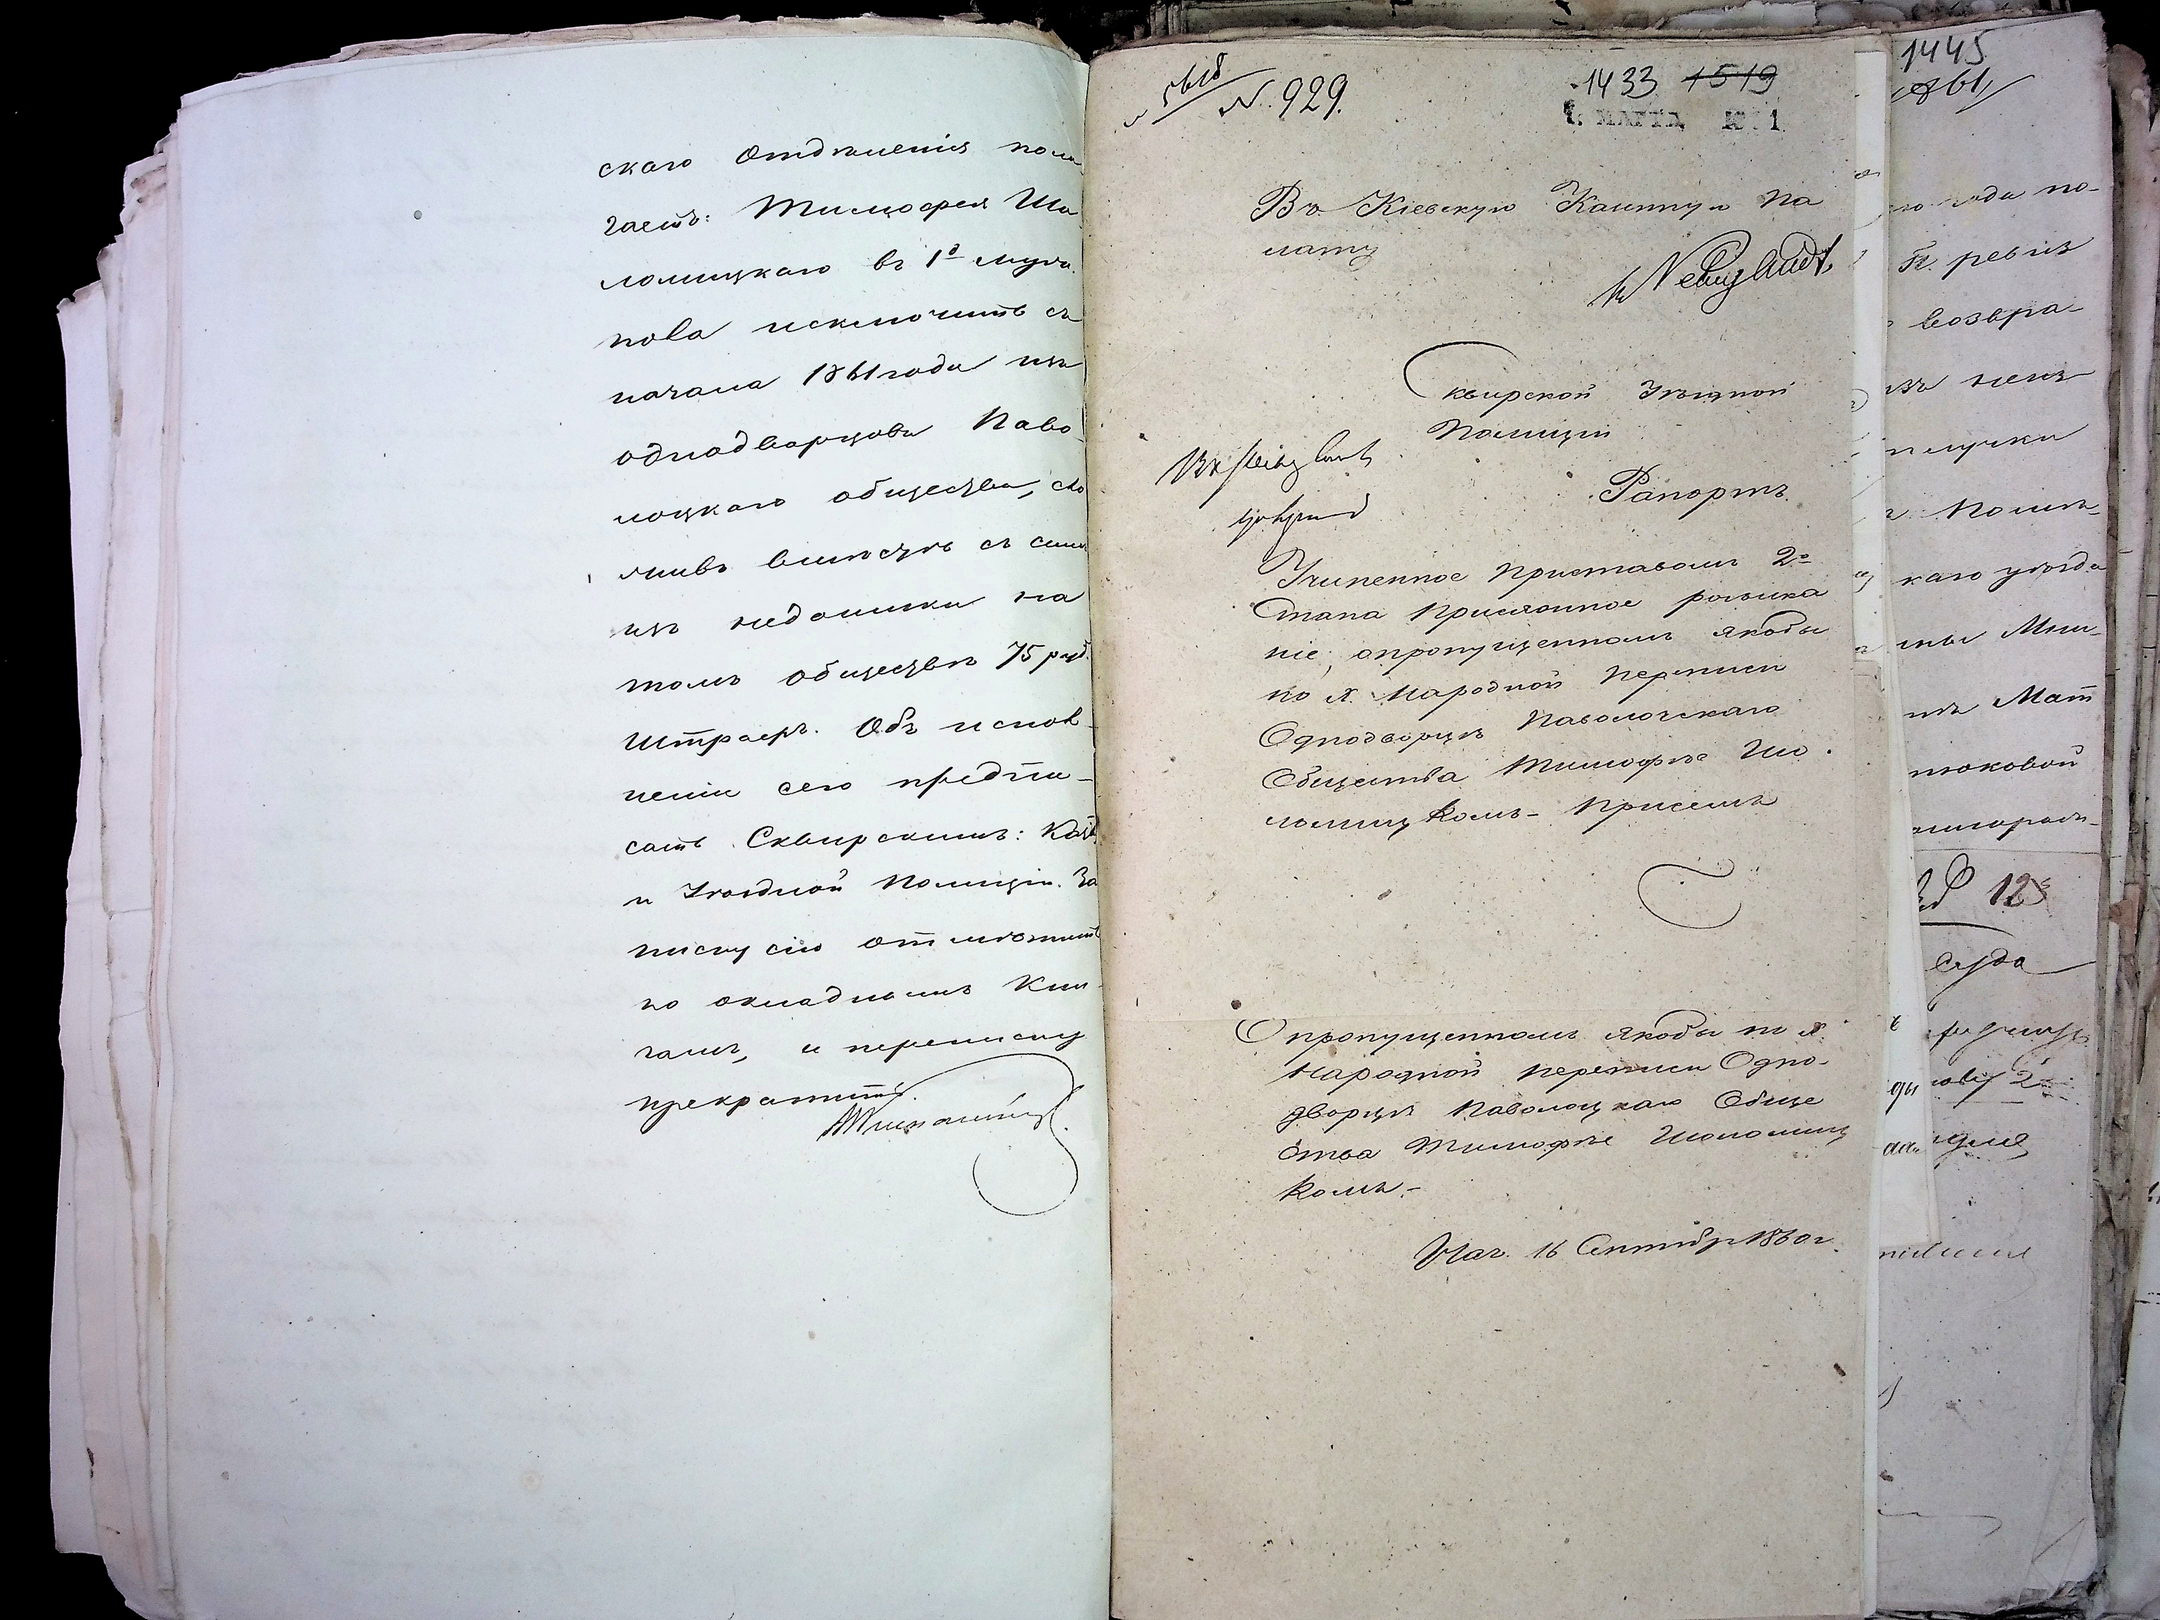 скаго Отдѣленія пола
гаетъ: Тимофея Шо
ломицкаго въ 1й муж.
пола исключить съ
начала 1861 года изъ
однодворцовъ Паво
лоцкаго общества, сло
живъ вмѣстѣ съ симъ
изъ недоимки на
томъ обществѣ 75 руб.
штрафъ. Объ испол
неніи сего предпи-
сать Сквирскимъ: Каз.
и Уѣздной Полиціи. За
писку сію отмѣтить
по окладнымъ Кни
гамъ, и переписку
прекратить.
№ 929.
1433 1519
МАРТА
Въ Кіевскую Казенную Па
лату
Сквирской Уѣздной
Полиціи
Рапортъ
Учиненное Приставомъ 2го
Стана Присланное розыска
ніе, опропущенномъ якобы
по X. Народной Переписи
Однодворцѣ Паволочскаго
Общества Тимофѣе Шо
ломицкомъ - Присемъ
О пропущенномъ якобы по X.
Народной переписи Одно-
дворцѣ Паволоцкаго Обще
ства Тимофѣе Шоломиц
комъ.-
Нач. 16 Сентябр 1860 г.
1445
1861
года по-
ревиз
возвра-
Полит-
каго уѣзда
Мат
нюковой
125
Суда